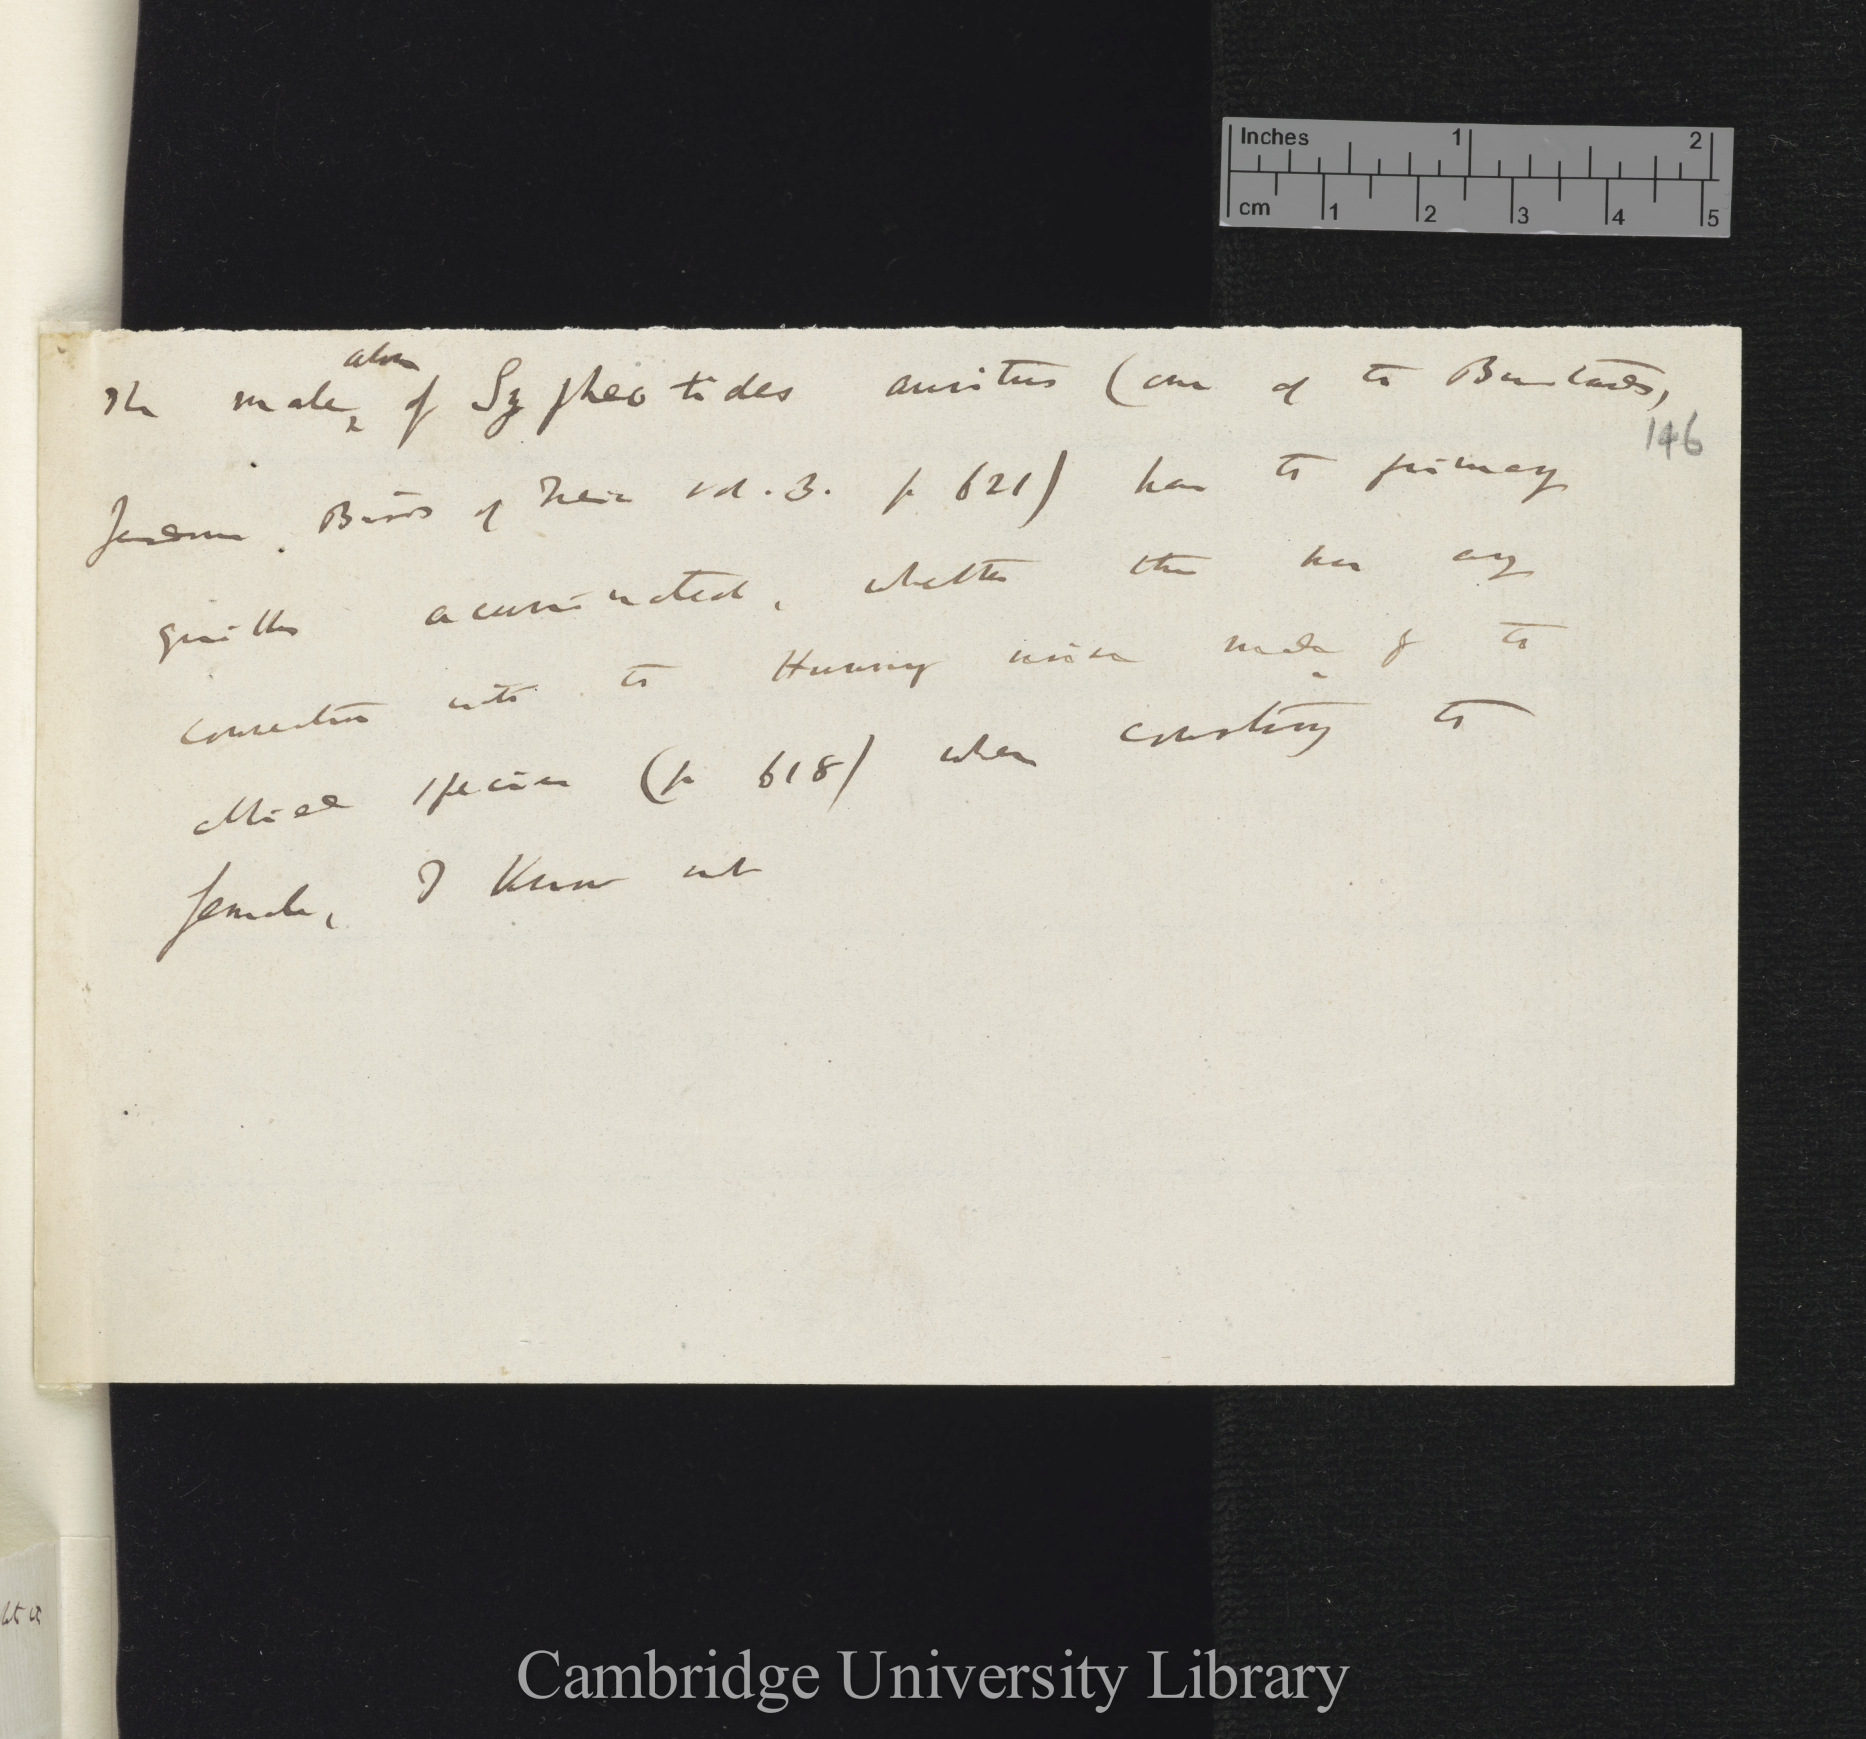 Inches 1 2
cm 1 2 3 4 5
alone
The male of Sypheotides auritus (one of the Bustards,
146
Jerdon Birds of India vol. 3. p 621) has the primary
quills acuminated, whether this has any
connection with the Humming noise made by the
allied species (p 618) when courting the
female, I know not
ht it
Cambridge University Library